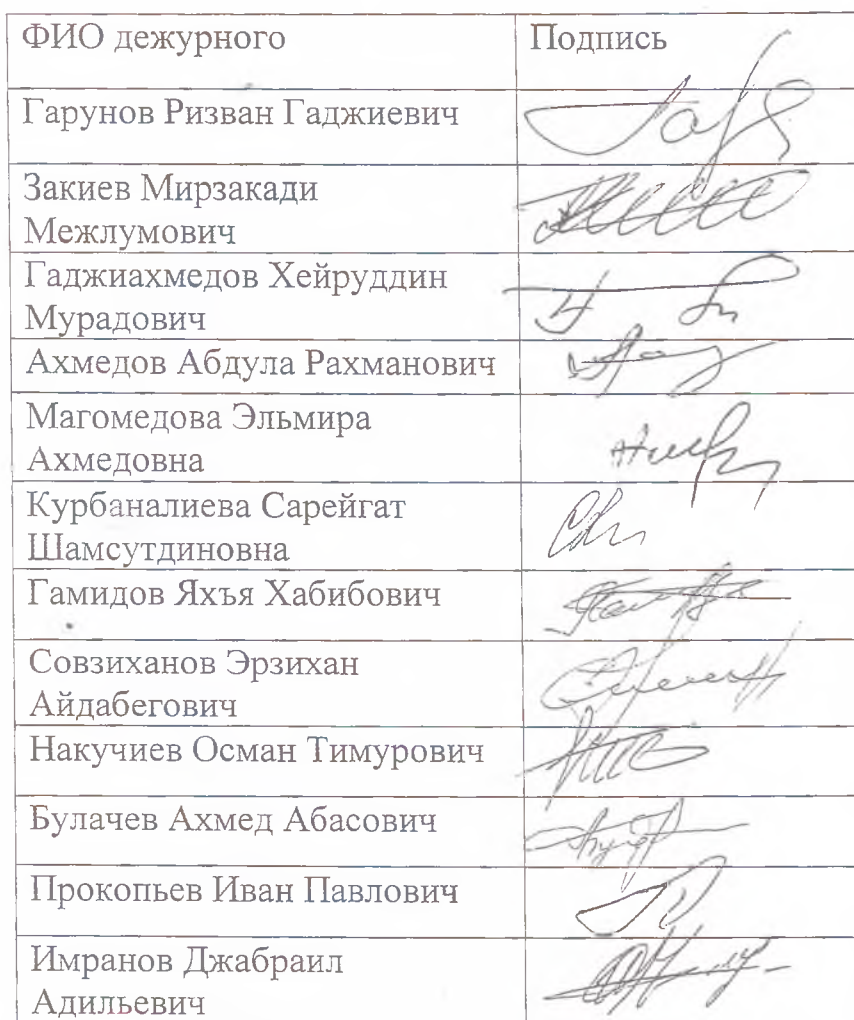 ФИО дежурного Подпись
Гарунов Ризван Гаджиевич
Закиев Мирзакади
Межлумович
Гаджиахмедов Хейруддин
Мурадович
Ахмедов Абдула Рахманович
Магомедова Эльмира
Ахмедовна
Курбаналиева Сарейгат
Шамсутдиновна
Гамидов Яхъя Хабибович
Совзиханов Эрзихан
Айдабегович
Накучиев Осман Тимурович
Булачев Ахмед Абасович
Прокопьев Иван Павлович
Имранов Джабраил
Адильевич